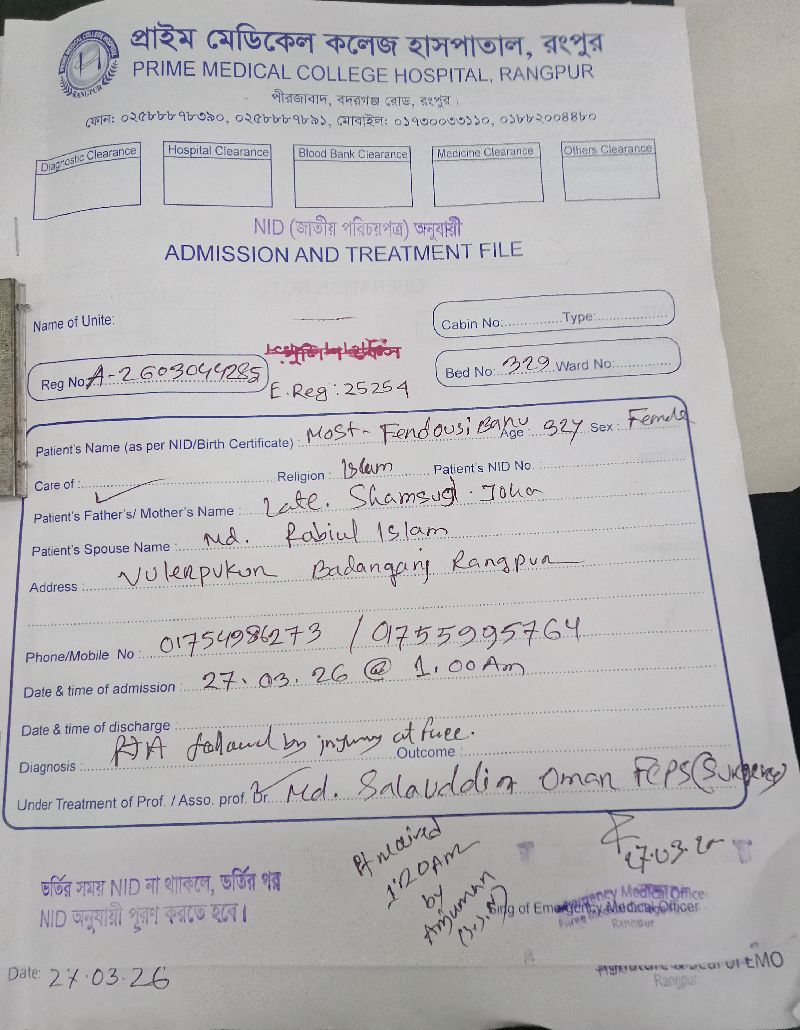 প্রাইম মেডিকেল কলেজ হাসপাতাল, রংপুর
PRIME MEDICAL COLLEGE HOSPITAL, RANGPUR
পীরজাবাদ, বদরগঞ্জ রোড, রংপুর।
ফোন: ০২৫৮৮৮৭৮৩৯০, ০২৫৮৮৮৭৮৯১, মোবাইল: ০১৭৩০০৩৩১১০, ০১৮৮২০০৪৪৮০
Diagnostic Clearance Hospital Clearance Blood Bank Clearance Medicine Clearance Others Clearance
NID (জাতীয় পরিচয়পত্র) অনুযায়ী
ADMISSION AND TREATMENT FILE
Name of Unite:
Cabin No: Type:
Reg No: A-2603044285
E.Reg: 25254
Bed No: 329 Ward No:
Patient's Name (as per NID/Birth Certificate) : Most- Fendousi Banu Age : 32y Sex : Female
Care of : Religion : Islam Patient's NID No. :
Patient's Father's/ Mother's Name : Late. Shamsul Joha
Patient's Spouse Name : Md. Rabiul Islam
Address : Nulenpukun Badanganj Rangpun
Phone/Mobile No : 01754986273 / 01755995764
Date & time of admission : 27.03.26 @ 1.00 Am
Date & time of discharge :
Diagnosis : RTA followed by injury at face. Outcome :
Under Treatment of Prof. / Asso. prof. Dr. Md. Salauddin Oman FCPS (Surgery)
Pt received
1:20 AM
by
Anjuman
27.03.26
Emergency Medical Officer
Sing of Emergency Medical Officer
Rangpur
ভর্তির সময় NID না থাকলে, ভর্তির পর
NID অনুযায়ী পুরণ করতে হবে।
Date: 27.03.26
EMO
Rangpur